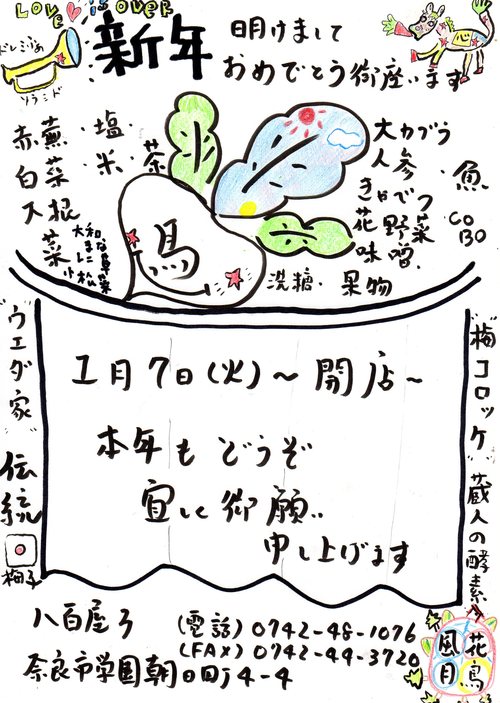 LOVE IS OVER
ドレミふぁ
ソラシド
新年
明けまして
おめでとう御座います
赤蕪・塩・茶
白菜・米
大根
菜
大和
まな
大カブラ
人参
きゅうり
花野菜
味噌
魚
COBO
洗糖・果物
馬
1月7日(火)～開店～
本年もどうぞ
宜しく御願い
申し上げます
"ウエダ家"
伝統
梅子
"梅コロッケ"
蔵人の酵素
八百屋ろ
(電話) 0742-48-1076
(FAX) 0742-44-3720
奈良市学園朝日町4-4
花鳥
風月